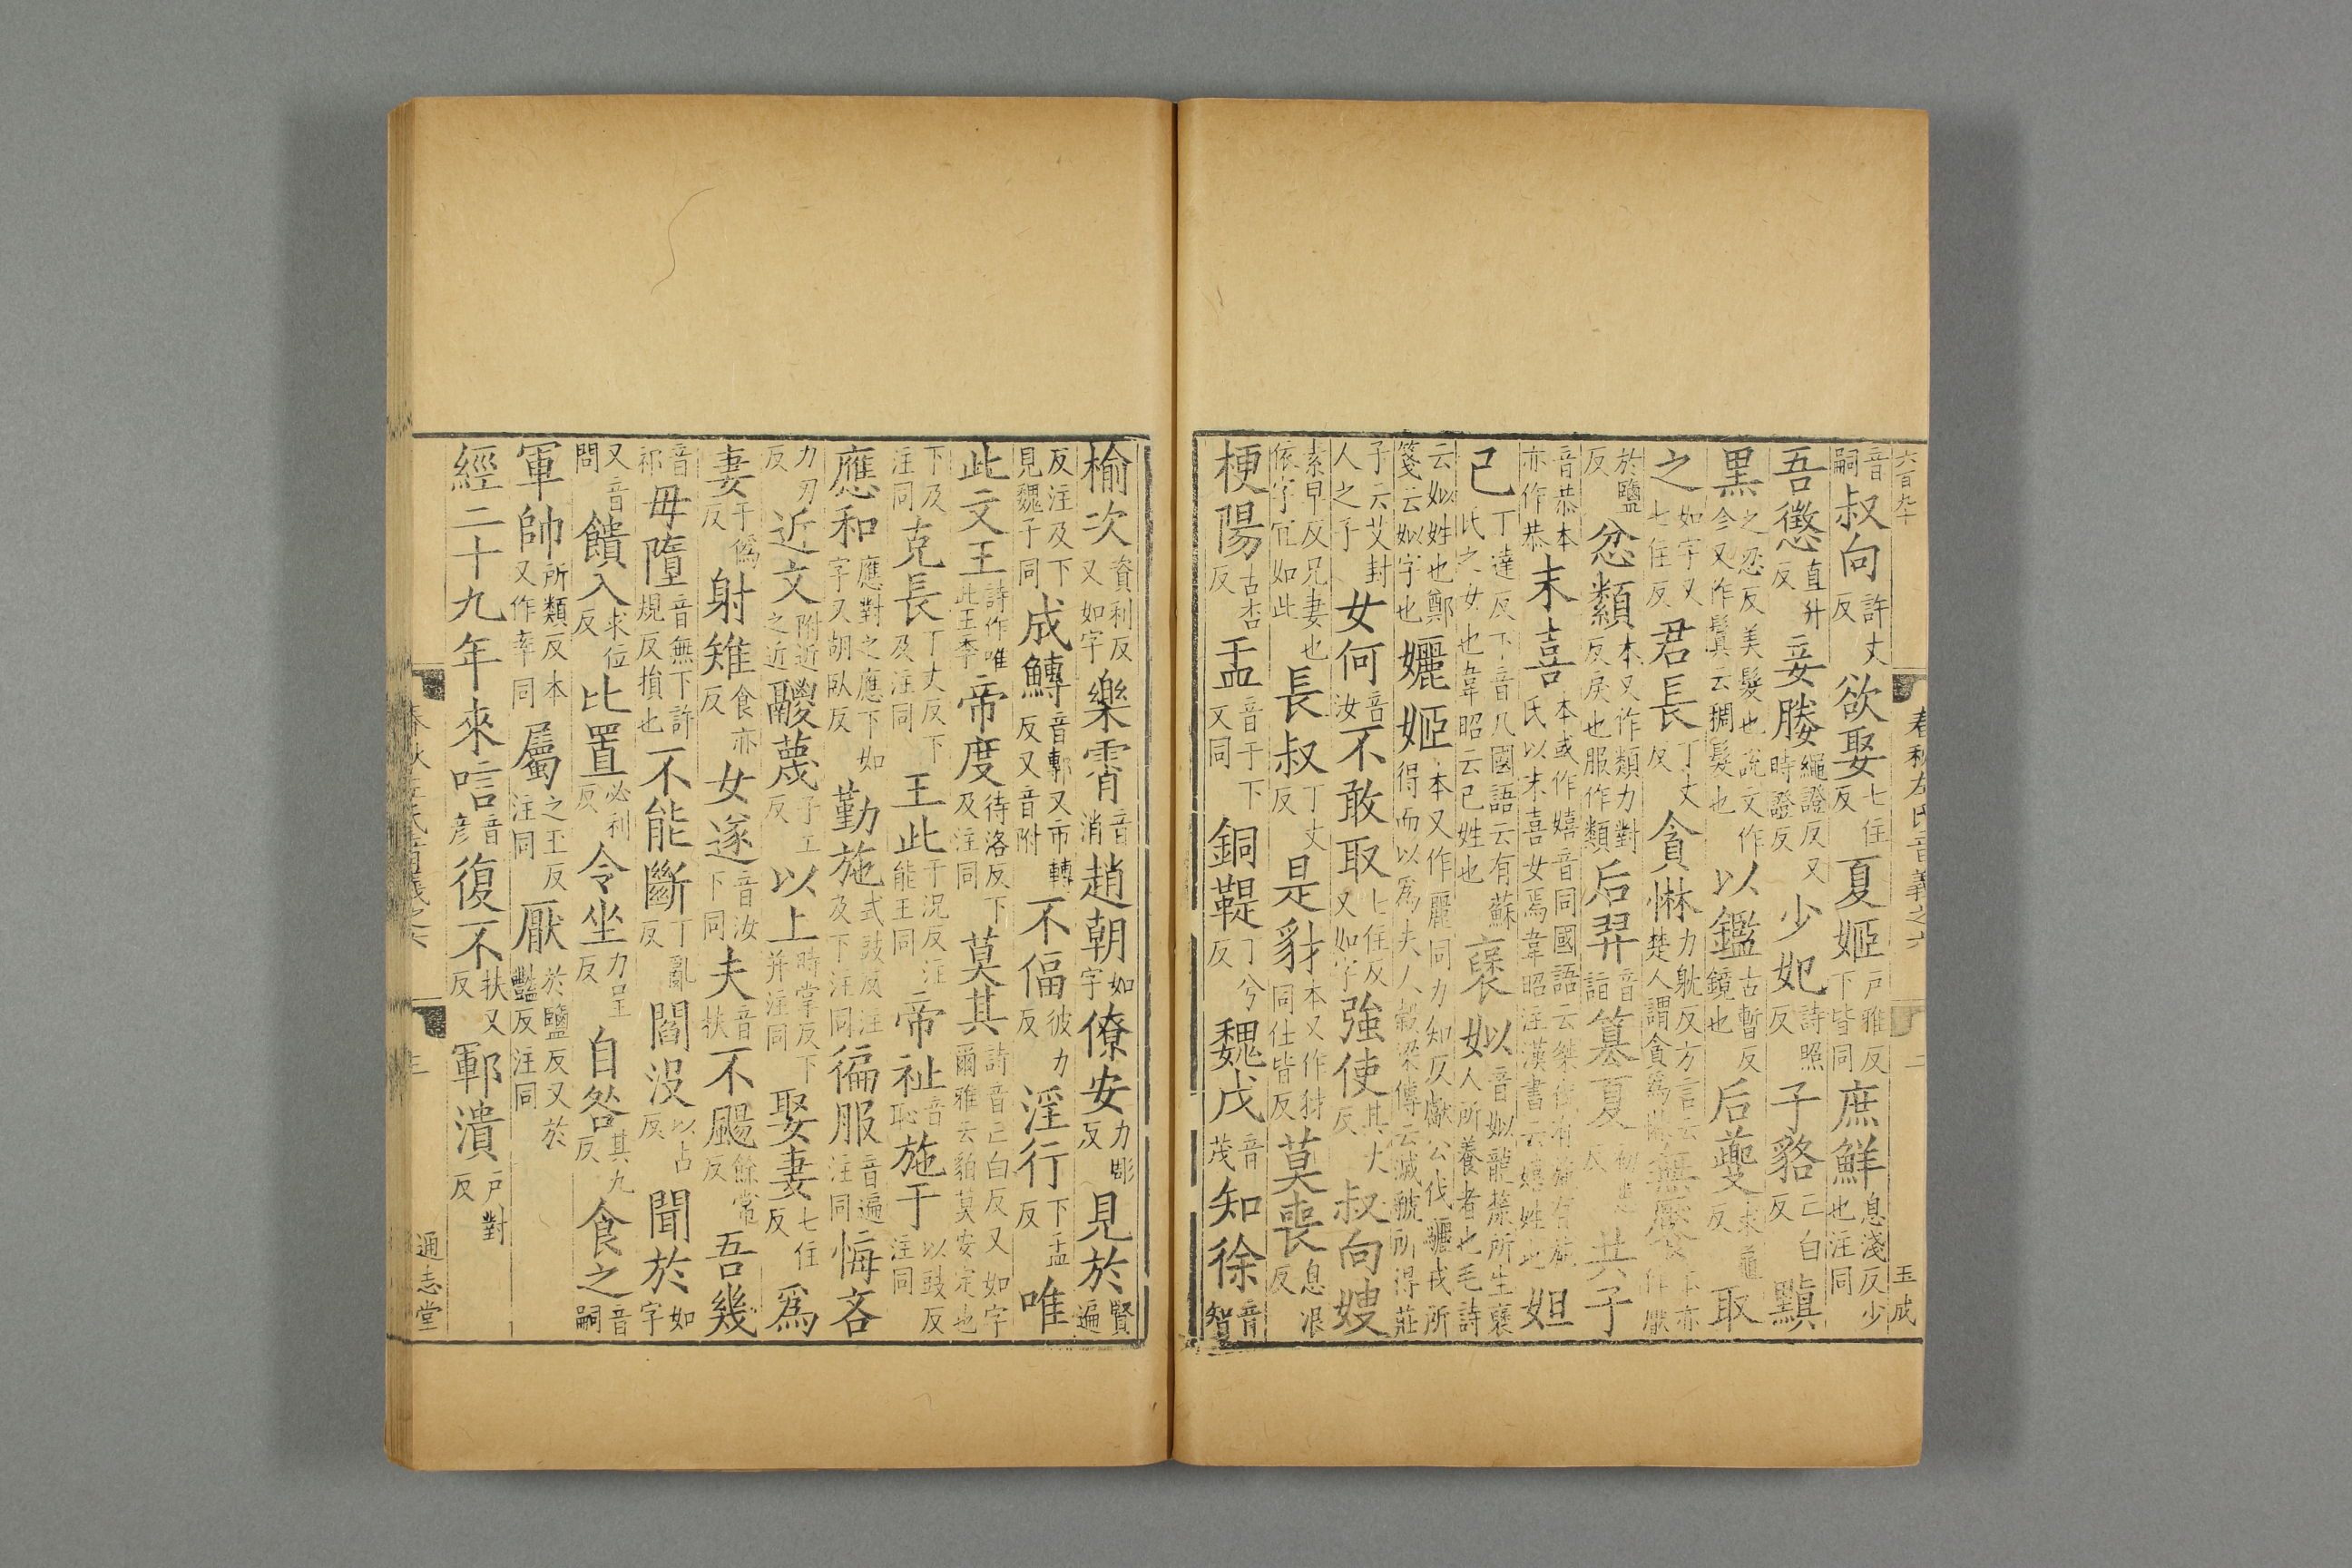 六百九十 春秋左氏音義之六 二 玉成
音嗣叔向許丈反欲娶七住反夏姬戶雅反下皆同庶鮮息淺反少也注同
吾懲直升反妾媵繩證反又時證反少妃詩照反子貉亡白反黰
黑之忍反美髮也說文作㐱又作鬒云稠髮也以鑑古暫反鏡也后夔求龜反取
之如字又七住反君長丁丈反貪惏力耽反方言云楚人謂貪爲惏無厭
於鹽反忿纇本又作類力對反戾也服作類后羿音詣簒夏共子
音恭本亦作恭末喜本或作嬉音同國語云桀伐有施有施氏以末喜女焉韋昭注漢書云嬉姓也妲
己丁達反下音几國語云有蘇氏之女也韋昭云己姓也襃姒音似龍漦所生襃人所養者也毛詩
云姒姓也鄭箋云姒字也孋姬本又作麗同力知反獻公伐孋戎所得而以爲夫人穀梁傳云滅虢所得莊
子云艾封人之子女何音汝不敢取七住反又如字強使其丈反叔向嫂
素早反兄妻也依字宜如此長叔丁丈反是豺本又作犲同仕皆反莫喪息浪反
梗陽古杏反盂音于下文同銅鞮丁兮反魏戊音茂知徐音智
榆次資利反又如字樂霄音消趙朝如字僚安力彫反見於賢遍
反注及下見魏子同成鱄音鄟又市轉反又音附不偪彼力反淫行下孟反唯
此文王詩作唯此王季帝度待洛反下及注同莫其詩音亡白反又如字爾雅云貊莫安定也
下及注同克長丁丈反下及注同王此于況反注能王同帝祉音恥施于以豉反注同
應和應對之應下如字又胡臥反勤施式豉反注及下注同徧服音遍注同悔吝
力刃反近文附近之近鬷蔑子工反以上時掌反下并注同娶妻七住反爲
妻于僞反射雉食亦反女遂音汝下同夫音扶不颺餘常反吾幾
音祁毋墮音無下許規反損也不能斷丁亂反閻沒以占反聞於如字
又音問饋入求位反比置必利反令坐力呈反自咎其九反食之音嗣
軍帥所類反本又作率同屬之玉反注同厭於鹽反又於豔反注同
經二十九年來唁音彥復不扶又反鄆潰戶對反
通志堂